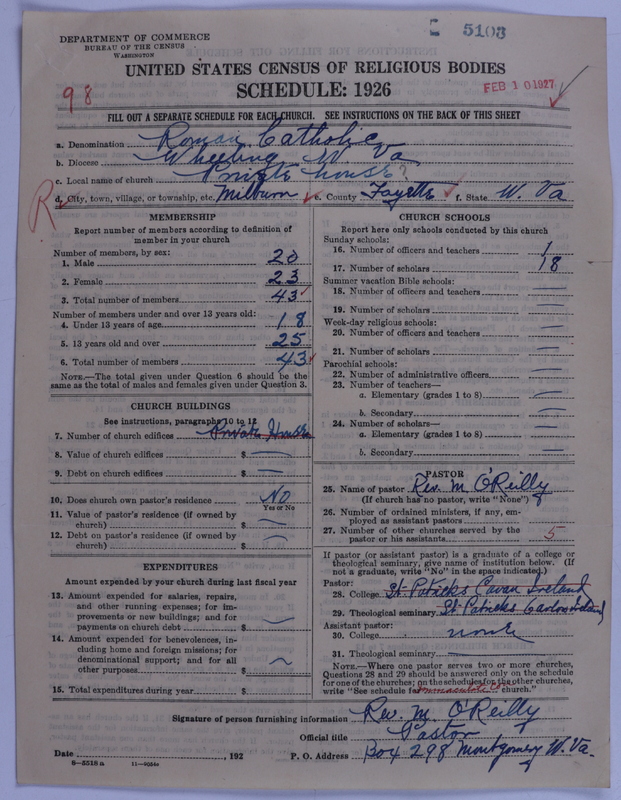 5103
DEPARTMENT OF COMMERCE
BUREAU OF THE CENSUS
WASHINGTON
UNITED STATES CENSUS OF RELIGIOUS BODIES
SCHEDULE: 1926
98
FEB 10 1927
FILL OUT A SEPARATE SCHEDULE FOR EACH CHURCH. SEE INSTRUCTIONS ON THE BACK OF THIS SHEET
a. Denomination Roman Catholic
b. Diocese Wheeling W Va
c. Local name of church Private house?
R
d. City, town, village, or township, etc. Milburn e. County Fayette f. State W. Va
MEMBERSHIP
Report number of members according to definition of
member in your church
Number of members, by sex:
1. Male 20
2. Female 23
3. Total number of members 43
Number of members under and over 13 years old:
4. Under 13 years of age 18
5. 13 years old and over 25
6. Total number of members 43
NOTE.—The total given under Question 6 should be the
same as the total of males and females given under Question 3.
CHURCH BUILDINGS
See instructions, paragraphs 10 to 12
7. Number of church edifices Private House
8. Value of church edifices $ —
9. Debt on church edifices $ —
10. Does church own pastor's residence No
Yes or No
11. Value of pastor's residence (if owned by
church) $ —
12. Debt on pastor's residence (if owned by
church) $ —
EXPENDITURES
Amount expended by your church during last fiscal year
13. Amount expended for salaries, repairs,
and other running expenses; for im-
provements or new buildings; and for
payments on church debt $ —
14. Amount expended for benevolences, in-
cluding home and foreign missions; for
denominational support; and for all
other purposes $ —
15. Total expenditures during year $
CHURCH SCHOOLS
Report here only schools conducted by this church
Sunday schools:
16. Number of officers and teachers 1
17. Number of scholars 18
Summer vacation Bible schools:
18. Number of officers and teachers —
19. Number of scholars —
Week-day religious schools:
20. Number of officers and teachers —
21. Number of scholars —
Parochial schools:
22. Number of administrative officers —
23. Number of teachers—
a. Elementary (grades 1 to 8) —
b. Secondary —
24. Number of scholars—
a. Elementary (grades 1 to 8) —
b. Secondary —
PASTOR
25. Name of pastor Rev. M O'Reilly
(If church has no pastor, write "None")
26. Number of ordained ministers, if any, em-
ployed as assistant pastors
27. Number of other churches served by the
pastor or his assistants 5
If pastor (or assistant pastor) is a graduate of a college or
theological seminary, give name of institution below. (If
not a graduate, write "No" in the space indicated.)
Pastor:
28. College St Patricks Cavan Ireland
29. Theological seminary St Patricks Carlow Ireland
Assistant pastor:
30. College none
31. Theological seminary —
NOTE.—Where one pastor serves two or more churches,
Questions 28 and 29 should be answered only on the schedule
for one of the churches; on the schedules for the other churches,
write "See schedule for Immaculate church."
Signature of person furnishing information Rev. M. O'Reilly
Official title Pastor
Date , 192 P. O. Address Box 298 Montgomery W. Va.
8—5518 a 11—9054a